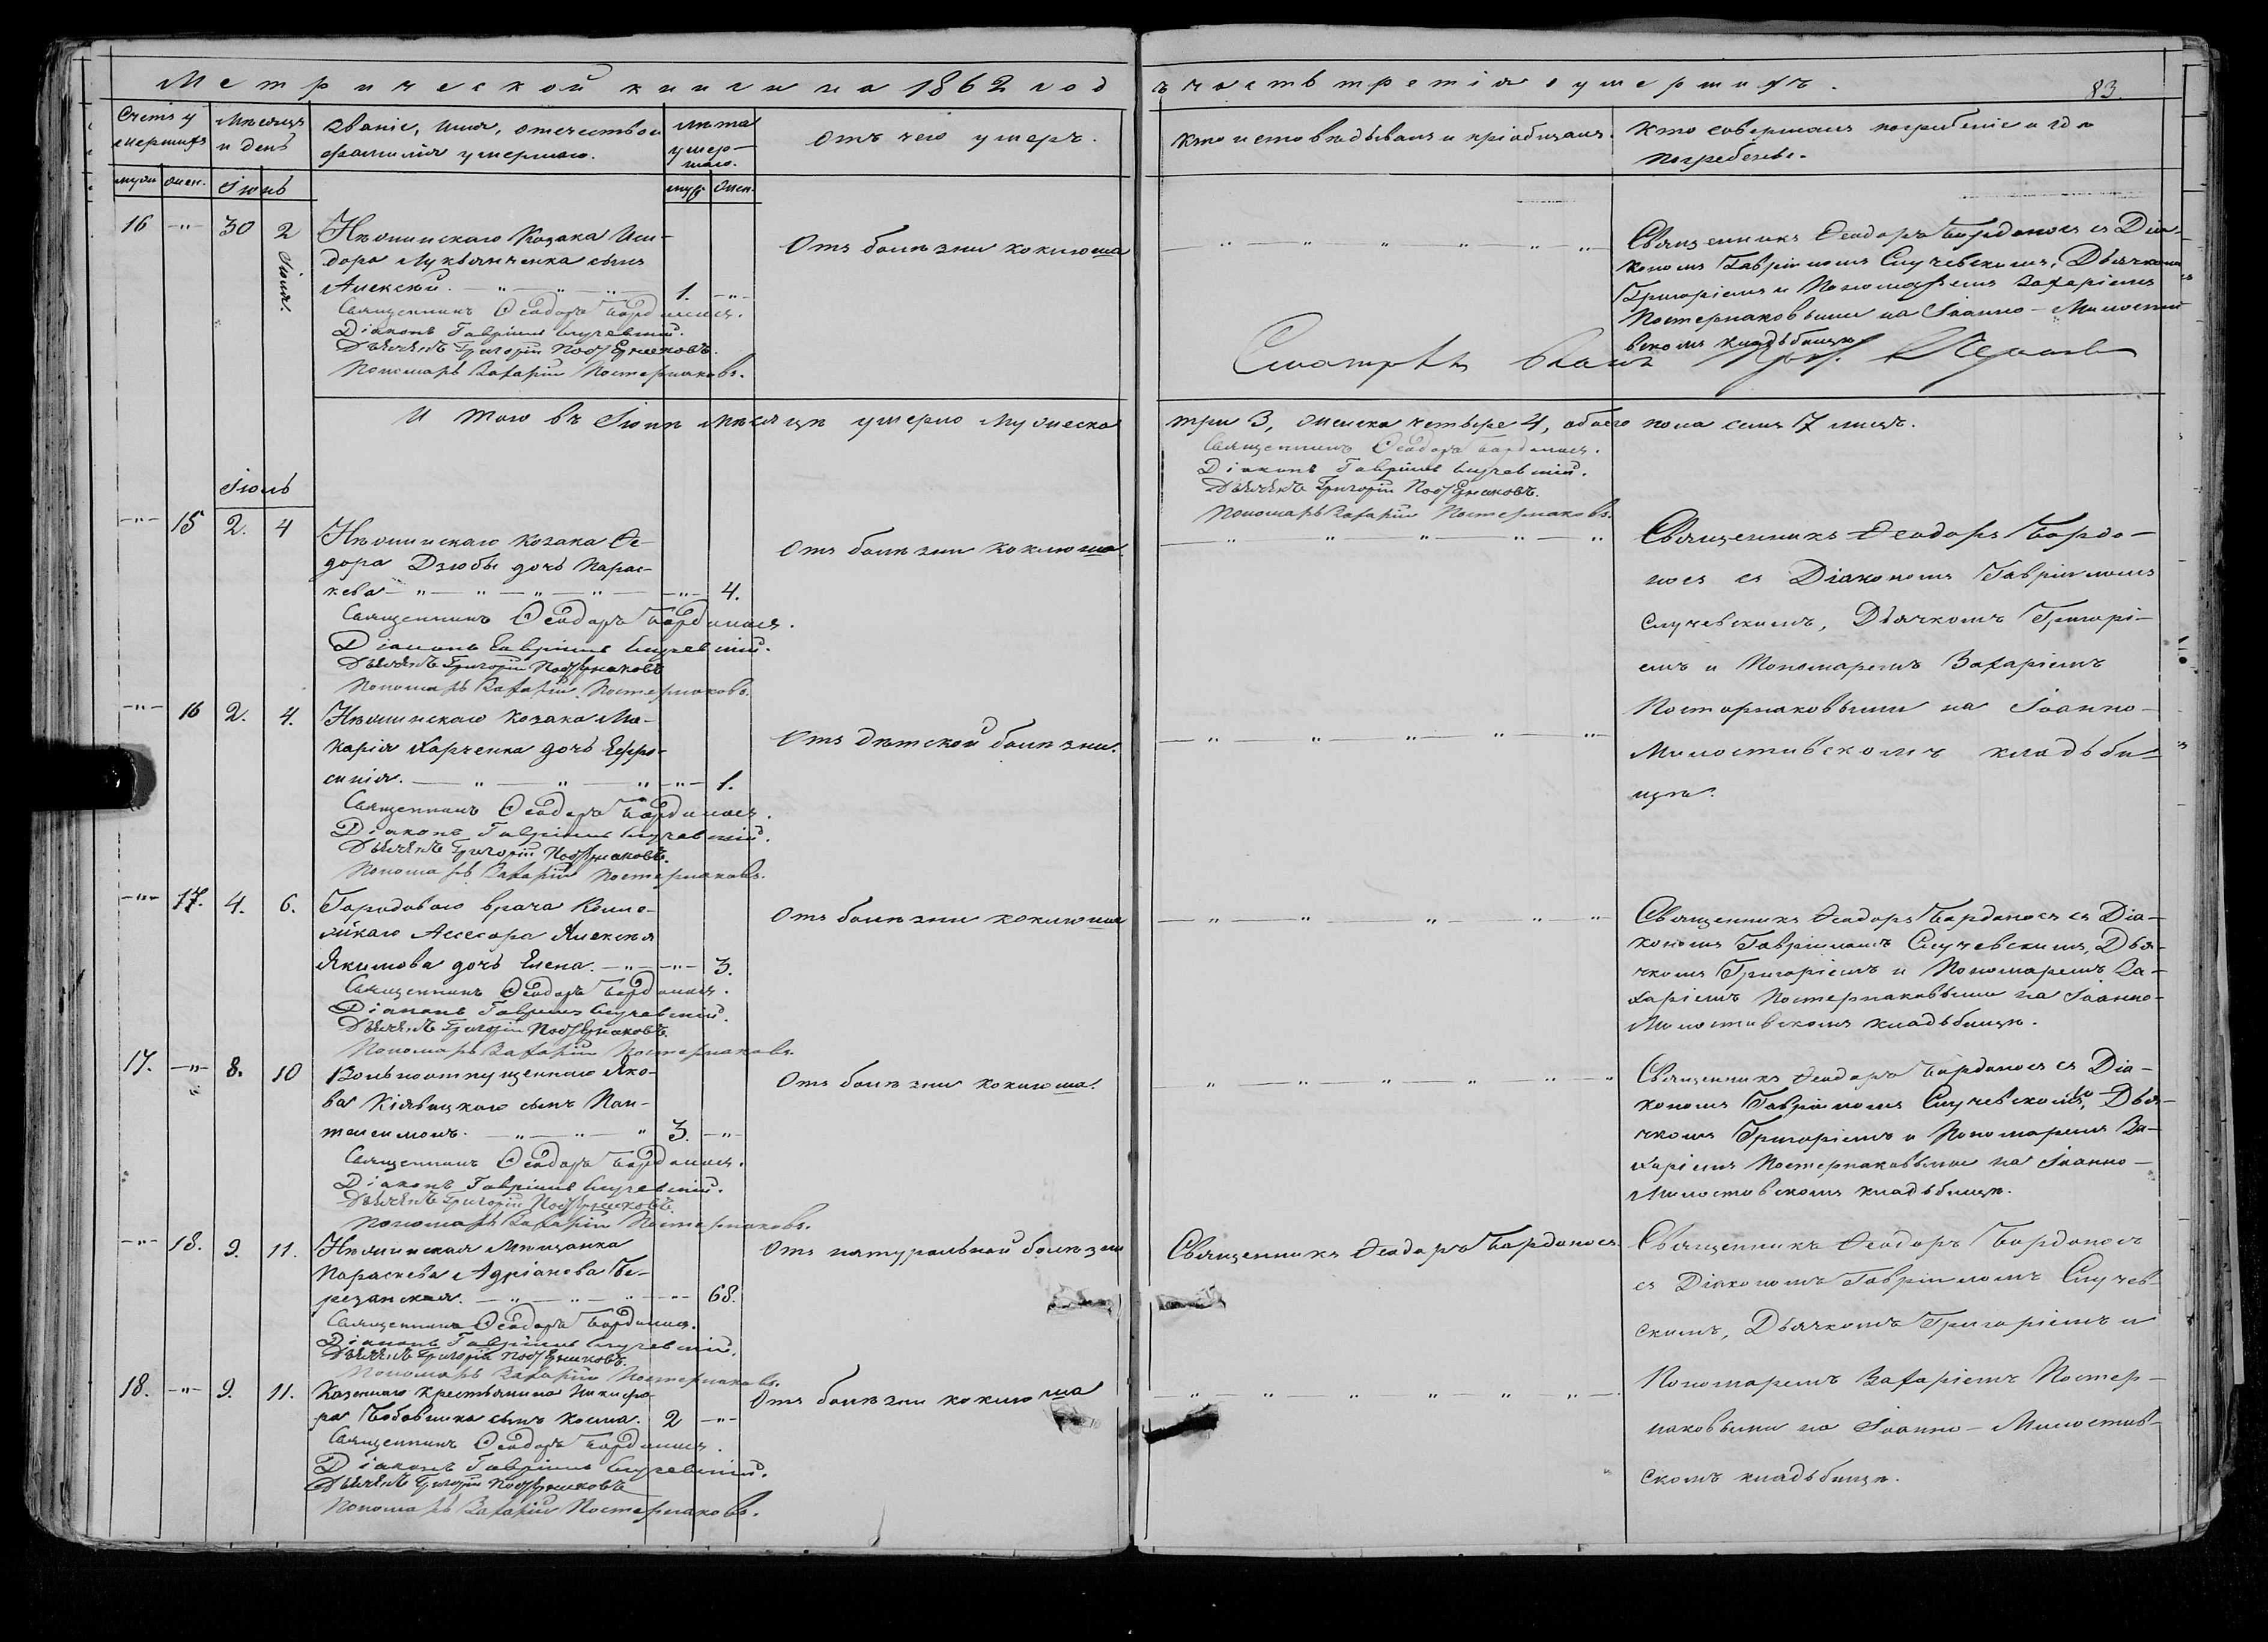 Метрической книги на 1862 год
ъ часть третія о умершихъ.
83.
Счетъ у
мершихъ
Мѣсяцъ
и день
Званіе, имя, отечество и
фамилія умершаго.
Лѣта
умер-
шаго.
Отъ чего умеръ.
Кто исповѣдывалъ и пріобщалъ.
Кто совершалъ погребеніе и гдѣ
погребены.
муж. жен.
Іюнь
муж. жен.
16 -"- 30 2 Іюля.
Нѣжинскаго Козака Иси-
дора Лукьянченка сынъ
Алексѣй. -"- -"- 1. -"-
Отъ болѣзни коклюша
Священникъ Ѳеодоръ Бордоносъ.
Діаконъ Гавріилъ Случевскій.
Дьячекъ Григорій Постернаковъ.
Пономарь Захарій Постернаковъ.
Священникъ Ѳеодоръ Бордоносъ съ Діа-
кономъ Гавріиломъ Случевскимъ, Дьячкомъ
Григоріемъ и Пономаремъ Захаріемъ
Постернаковыми на Іоанно-Милостив-
скомъ кладьбищѣ
Смотрѣлъ Благ.
И того въ Іюнѣ мѣсяцѣ умерло мужеска
три 3, женска четыре 4, обоего пола семь 7 лицъ.
Священникъ Ѳеодоръ Бордоносъ.
Діаконъ Гавріилъ Случевскій.
Дьячекъ Григорій Постернаковъ.
Пономарь Захарій Постернаковъ.
Іюль
-"- 15 2. 4
Нѣжинскаго козака Ѳе-
дора Дзюбы дочь Парас-
кева -"- -"- 4.
Отъ болѣзни коклюша
Священникъ Ѳеодоръ Бордоносъ.
Діаконъ Гавріилъ Случевскій.
Дьячекъ Григорій Постернаковъ
Пономарь Захарій Постернаковъ.
Священникъ Ѳеодоръ Бордо-
носъ съ Діакономъ Гавріиломъ
Случевскимъ, Дьячкомъ Григорі-
емъ и Пономаремъ Захаріемъ
Постернаковыми на Іоанно-
Милостивскомъ кладьби-
щѣ.
-"- 16 2. 4.
Нѣжинскаго козака Ма-
карія Харченка дочь Евфро-
синія. -"- -"- 1.
Отъ дѣтской болѣзни.
Священникъ Ѳеодоръ Бордоносъ.
Діаконъ Гавріилъ Случевскій.
Дьячекъ Григорій Постернаковъ.
Пономарь Захарій Постернаковъ.
-"- 17. 4. 6.
Городоваго врача Колле-
жскаго Асесора Алексѣя
Якимова дочь Елена. -"- -"- 3.
Отъ болѣзни коклюша
Священникъ Ѳеодоръ Бордоносъ.
Діаконъ Гавріилъ Случевскій.
Дьячекъ Григорій Постернаковъ.
Пономарь Захарій Постернаковъ.
Священникъ Ѳеодоръ Бордоносъ съ Діа-
кономъ Гавріиломъ Случевскимъ, Дья-
чкомъ Григоріемъ и Пономаремъ За-
харіемъ Постернаковыми на Іоанно-
Милостивскомъ кладьбищѣ.
17. -"- 8. 10
Вольноотпущеннаго Яко-
ва Кіявицкаго сынъ Пан-
телеимонъ. -"- -"- 3. -"-
Отъ болѣзни коклюша.
Священникъ Ѳеодоръ Бордоносъ.
Діаконъ Гавріилъ Случевскій.
Дьячекъ Григорій Постернаковъ.
Пономарь Захарій Постернаковъ.
Священникъ Ѳеодоръ Бордоносъ съ Діа-
кономъ Гавріиломъ Случевскимъ, Дья-
чкомъ Григоріемъ и Пономаремъ За-
харіемъ Постернаковыми на Іоанно-
Милостовскомъ кладьбищѣ.
-"- 18. 9. 11.
Нѣжинская мѣщанка
Параскева Адріанова Бе-
резанская. -"- -"- 68.
Отъ натуральной болѣзни
Священникъ Ѳеодоръ Бордоносъ.
Священникъ Ѳеодоръ Бордоносъ.
Діаконъ Гавріилъ Случевскій.
Дьячекъ Григорій Постернаковъ.
Пономарь Захарій Постернаковъ.
Священникъ Ѳеодоръ Бордоносъ
съ Діакономъ Гавріиломъ Случев-
скимъ, Дьячкомъ Григоріемъ и
Пономаремъ Захаріемъ Постер-
наковыми на Іоанно-Милостив-
скомъ кладьбищѣ.
18. -"- 9. 11.
Казеннаго крестьянина Никифо-
ра Бобовника сынъ Косма. 2 -"-
Отъ болѣзни коклюша
Священникъ Ѳеодоръ Бордоносъ.
Діаконъ Гавріилъ Случевскій.
Дьячекъ Григорій Постернаковъ
Пономарь Захарій Постернаковъ.